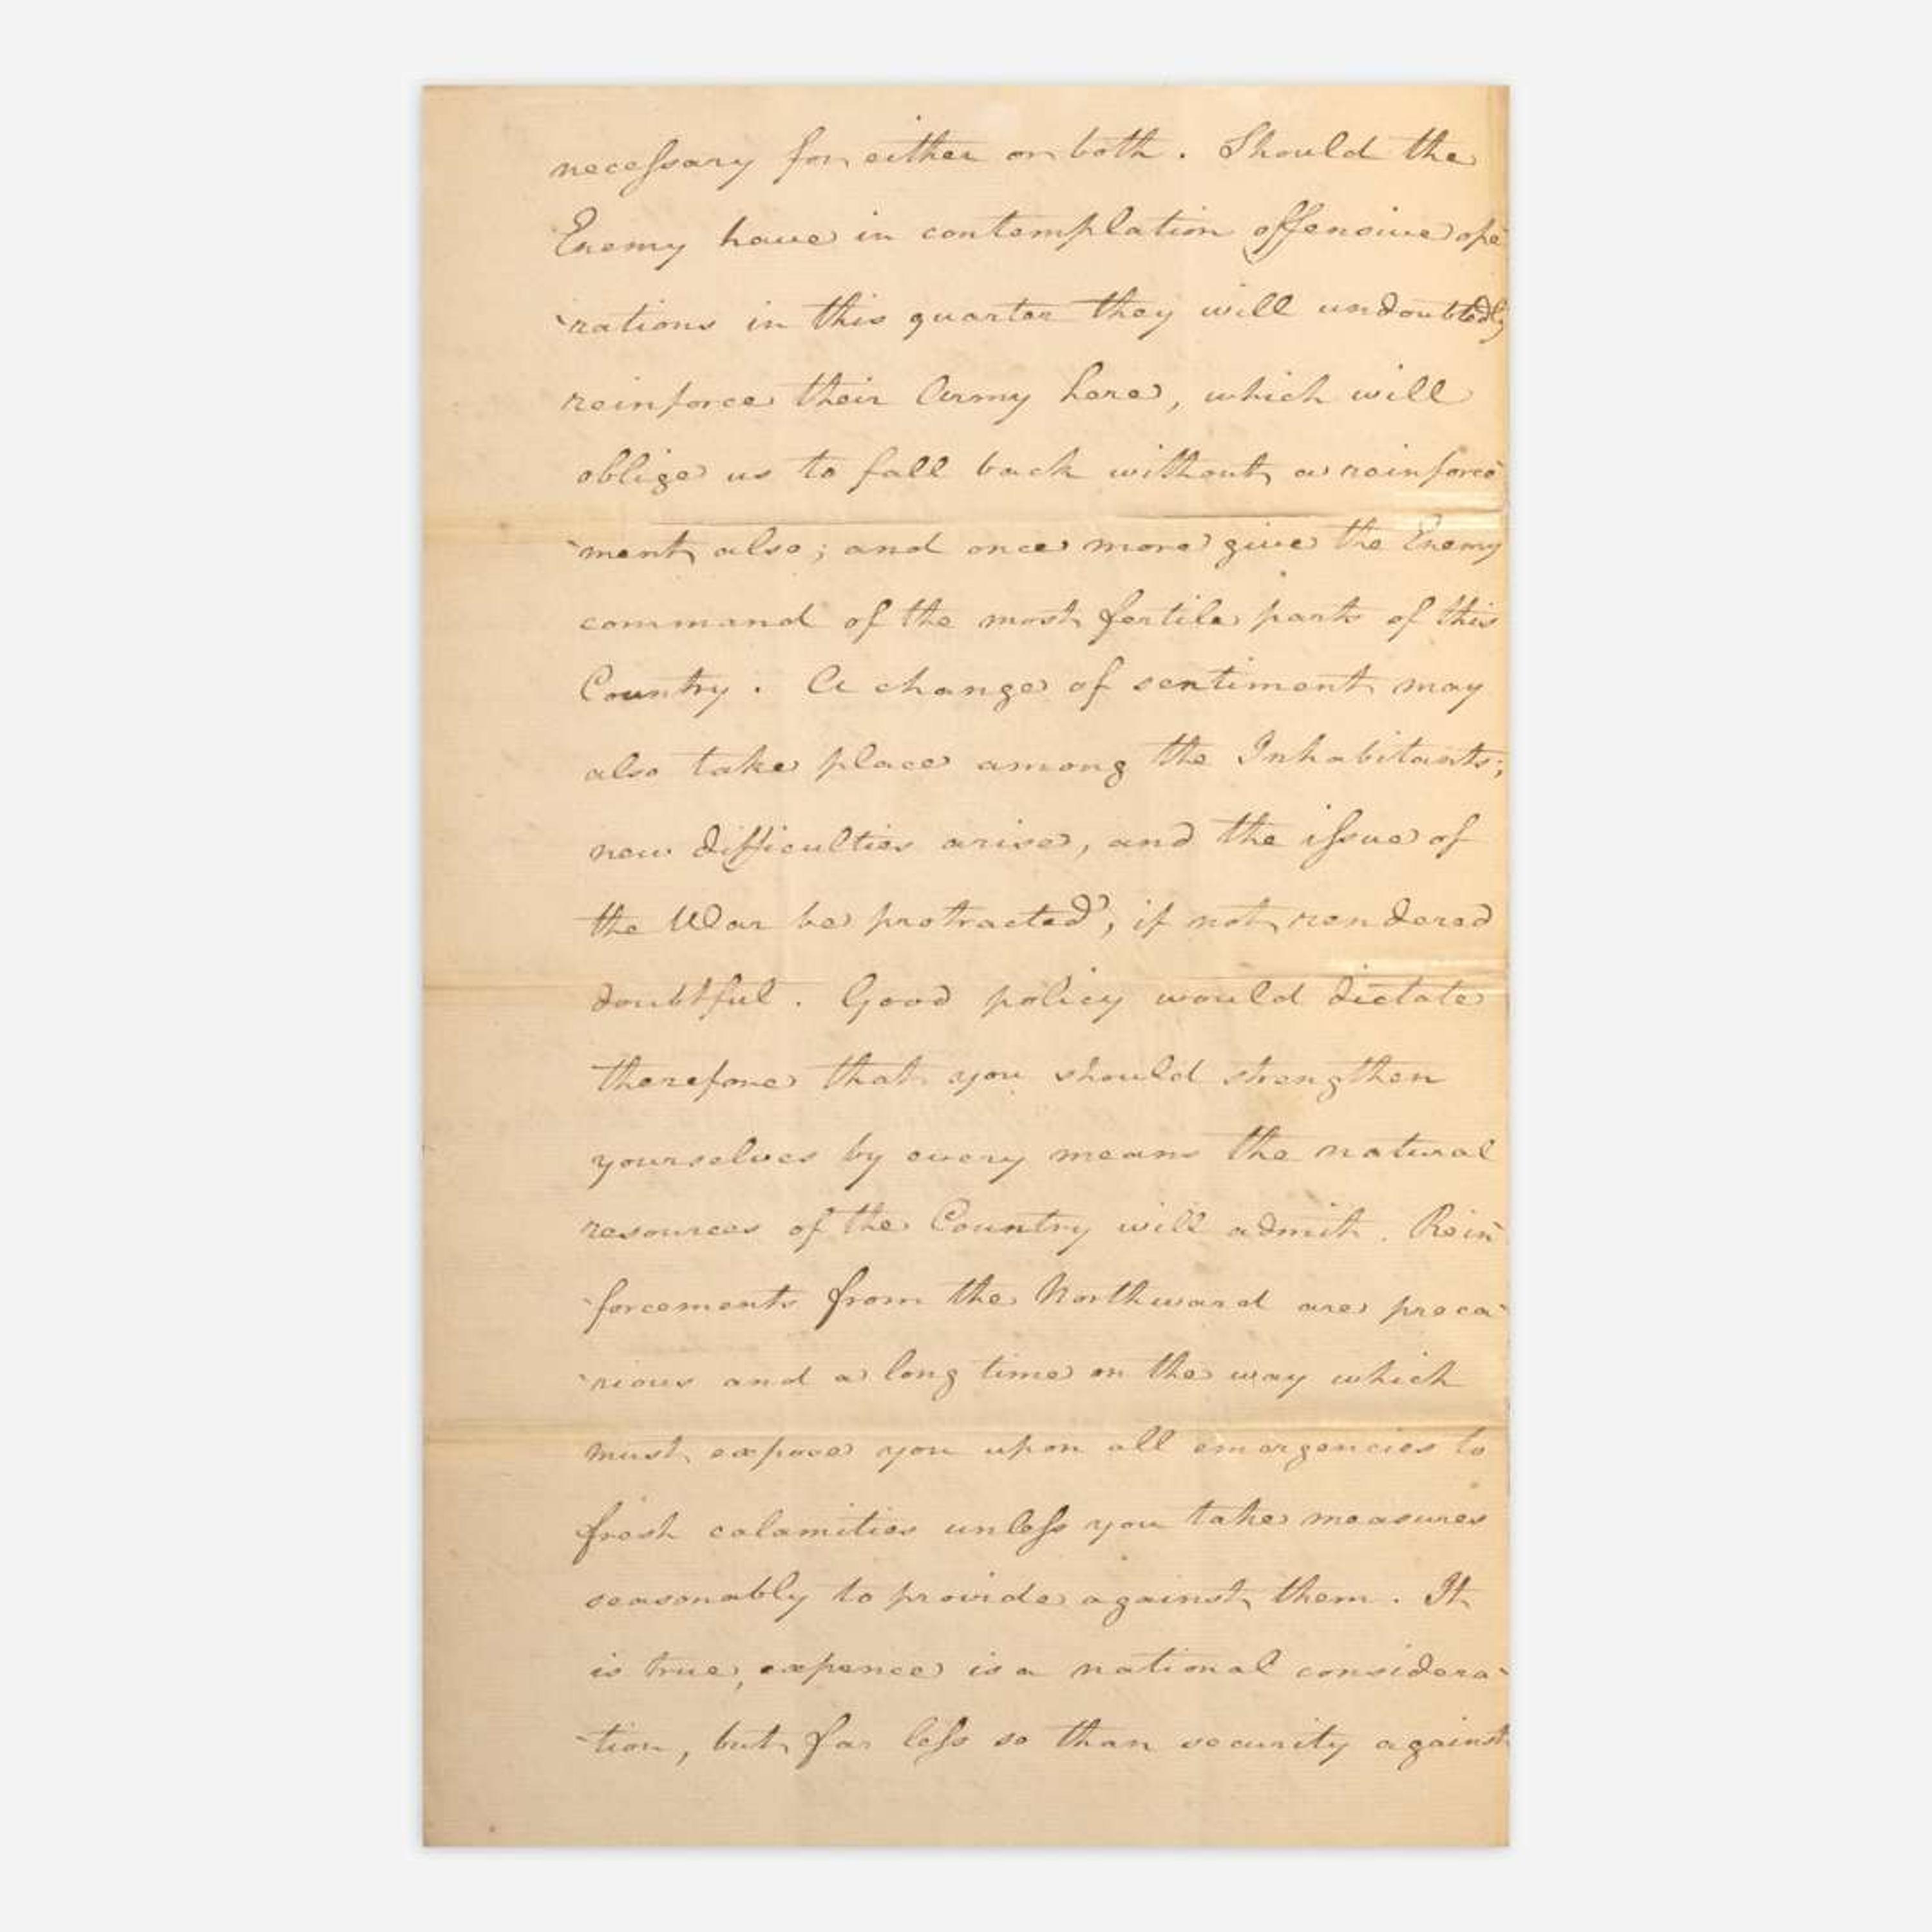 necessary for either or both. Should the
Enemy have in contemplation offensive ope-
-rations in this quarter they will undoubtedly
reinforce their Army here, which will
oblige us to fall back without a reinforce-
-ment also; and once more give the Enemy
command of the most fertile parts of this
Country. A change of sentiment may
also take place among the Inhabitants;
new difficulties arise, and the issue of
the War be protracted, if not rendered
doubtful. Good policy would dictate
therefore that you should strengthen
yourselves by every means the natural
resources of the Country will admit. Rein-
-forcements from the Northward are preca-
-rious and a long time on the way which
must expose you upon all emergencies to
fresh calamities unless you take measures
seasonably to provide against them. It
is true, expence is a national considera-
-tion, but far less so than security against